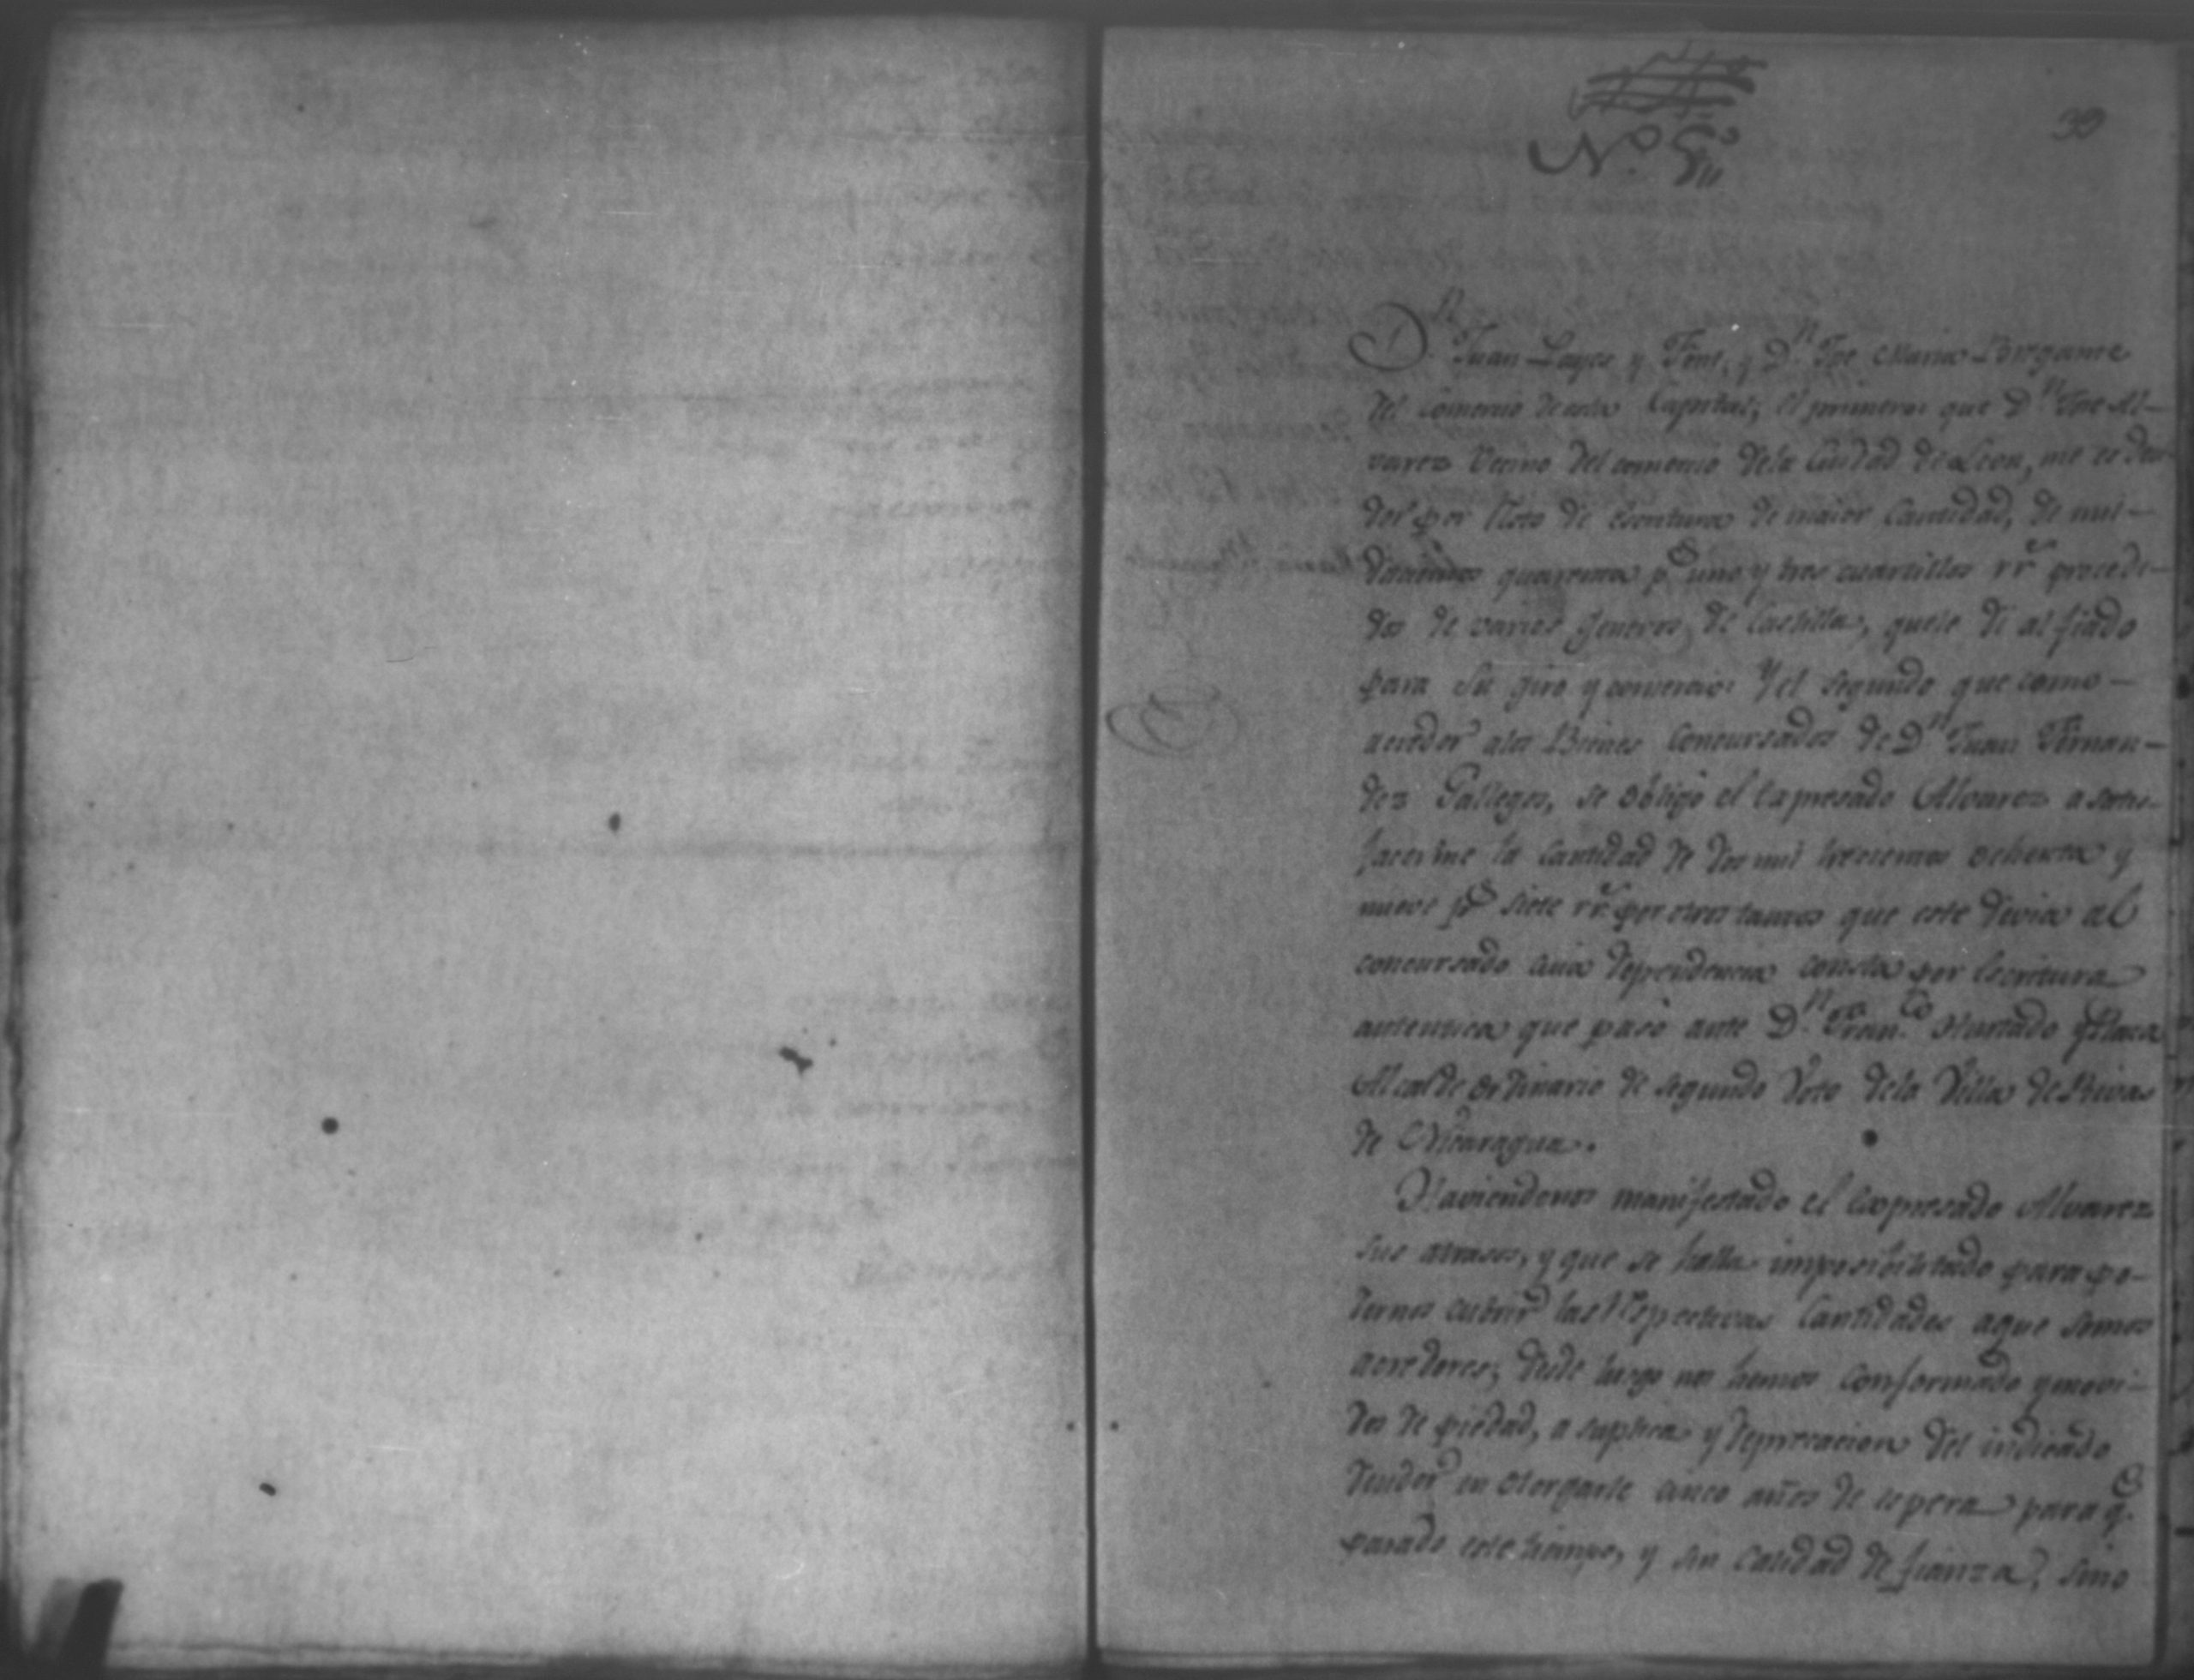 39
Nº 5º
Dn. Juan Layes y Font, y Dn. Jpe Maria Bergante
del Comercio de esta Capital; el primero: que Dn. Jpe Al-
varez Vecino del comercio dela Ciudad de Leon, me es deu-
dor por Resto de escritura de maior Cantidad, de mil-
quarenta ps. uno y tres cuartillos rr.s procedi-
dos de varios generos de Castilla, quele di al fiado
para su giro y comercio: Y el segundo que como-
acredor alos Bienes Concursados de Dn Juan Fernan-
dez Gallegos, se obligó el Expresado Alvarez a satis-
facerme la Cantidad de dos mil trecientos ochenta y
nueve ps. siete rr.s por otros tantos que este devia al
concursado cuia dependencia consta por Escritura
autentica que pasó ante Dn. Fran.co Hurtado y Plaza
Alcalde ordinario de segundo Voto dela Villa de Rivas
de Nicaragua.
Haviendonos manifestado el Expresado Alvarez
sus atrasos, y que se halla imposibilitado para po-
dernos cubrir las Respectivas Cantidades aque somos
acredores; desde luego nos hemos conformado y movi-
dos de piedad, a suplica y deprecacion del indicado
deudor en otorgarle cinco años de espera para q.e
pasado este tiempo, y sin calidad de fianza, sino